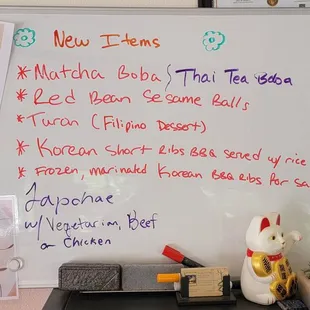 New Items
* Matcha Boba { Thai Tea Boba
* Red Bean Sesame Balls
* Turan (Filipino Dessert)
* Korean short Ribs BBQ served w/ rice
* Frozen, marinated Korean BBQ Ribs for Sa
Japchae
w/ Vegetarian, Beef
or Chicken